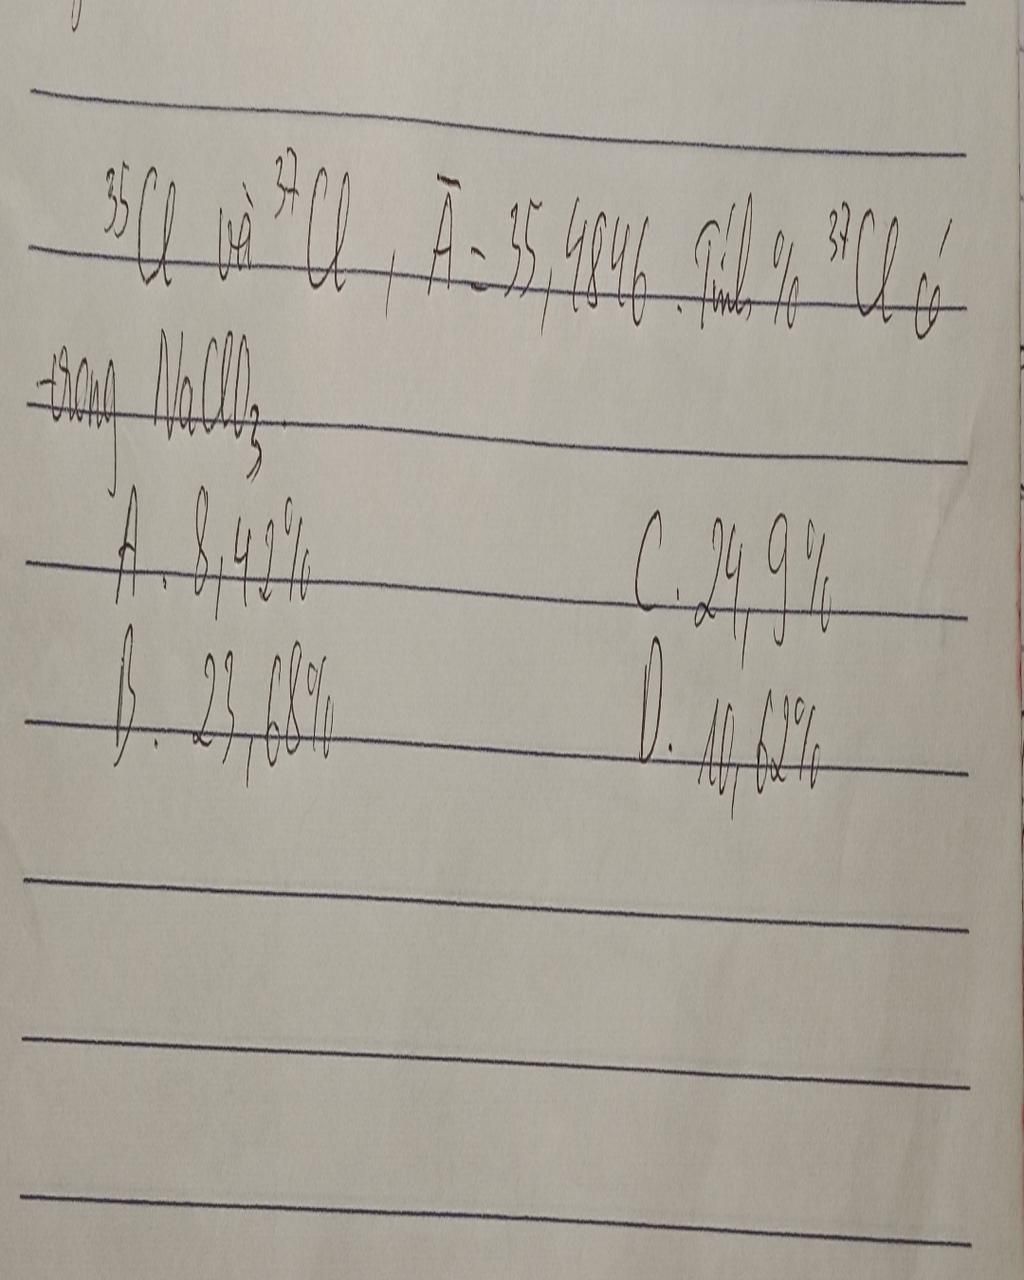 ³⁵Cl và ³⁷Cl, Ā = 35,4846. Tính % ³⁷Cl có
trong NaClO₃.
A. 8,42% C. 24,9%
B. 23,68% D. 10,62%